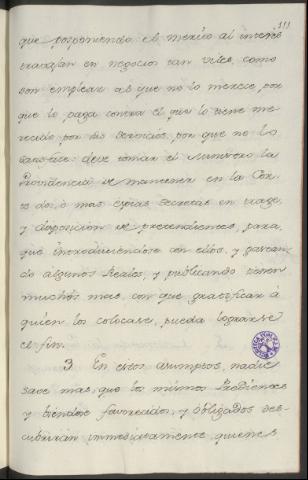 111
que posponiendo el merito al interes
trabajan en negocios tan viles, como
son emplear al que no lo merece, por
que lo paga contra el que lo tiene me
recido por sus servicios, por que no lo
satisface: deve tomar el Ministro la
Providencia de mantener en la Cor
te dos, o mas espias secretas en trage,
y disposicion de pretendientes, para
que introduciendose con ellos, y gastan
do algunos Reales, y publicando tienen
muchos mas, con que gratificar á
quien los colocase, pueda lograrse
el fin.
3. En estos asumptos, nadie
save mas, que los mismos Pretendientes
y siendo favorecidos, y obligados des-
cubriran immediatamente quienes